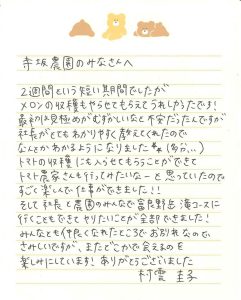 寺坂農園のみなさんへ
2週間という短い期間でしたが
メロンの収穫もやらせてもらえてうれしかったです!
最初は見極めがむずかしいなと不安だったんですが
社長がとてもわかりやすく教えてくれたので
なんとかわかるようになりました(多分...)
トマトの収穫にも入らせてもらうことができて
トマト農家さんも行ってみたいなーと思っていたので
すごく楽しんで仕事ができました!!
そして社長と農園のみんなで富良野岳 海コースに
行くこともできてやりたいことが全部できました!
みんなとも仲良くなれたところでお別れなので
さみしいですが、またどこかで会えるのを
楽しみにしています! ありがとうございました
村雲 圭子